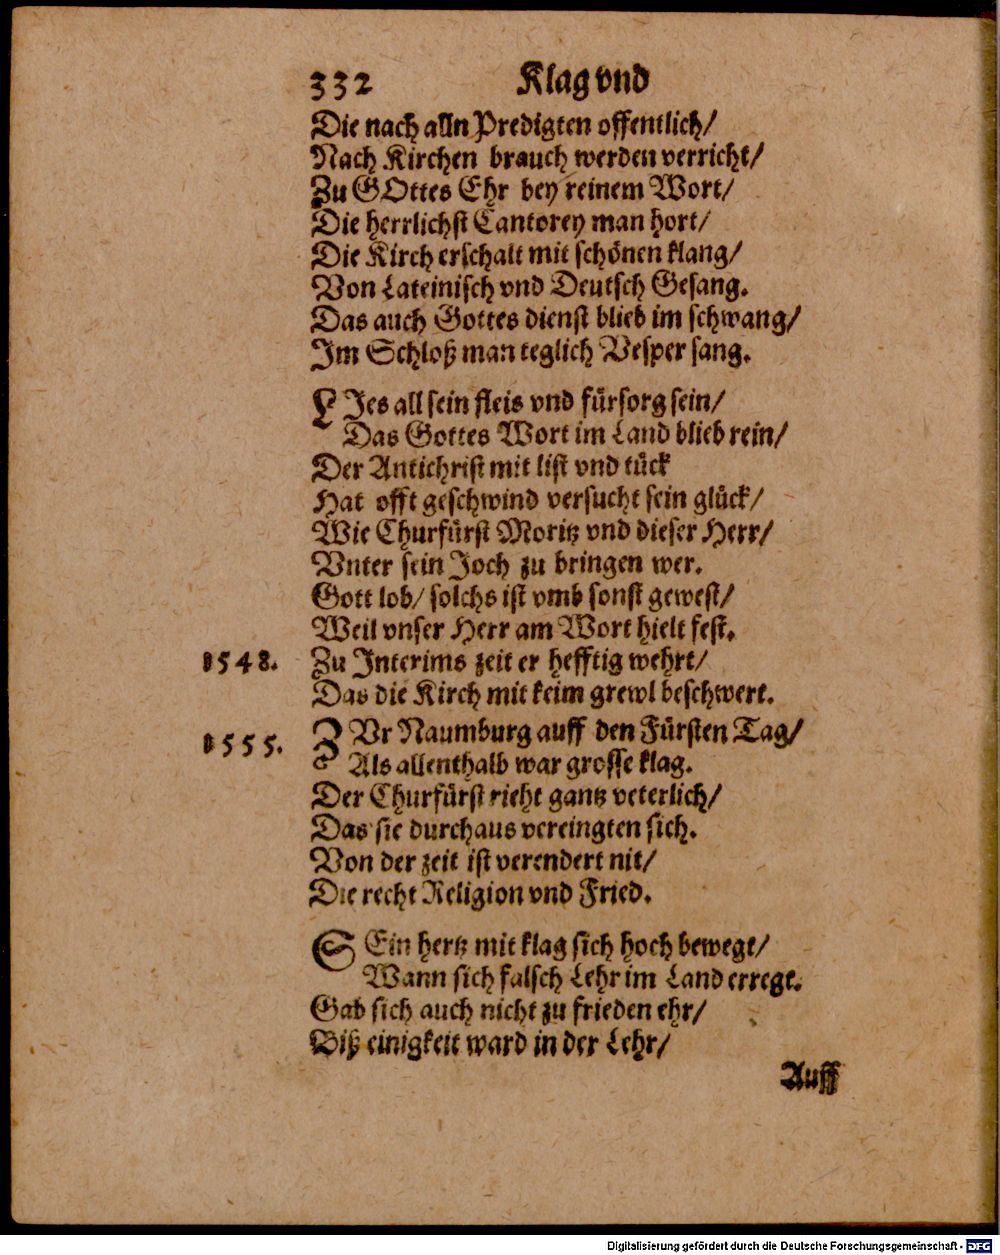 332 Klag vnd
Die nach alln Predigten offentlich/
Nach Kirchen brauch werden verricht/
Zu GOttes Ehr bey reinem Wort/
Die herrlichst Cantorey man hort/
Die Kirch erschalt mit schönen klang/
Von Lateinisch vnd Deutsch Gesang.
Das auch Gottes dienst blieb im schwang/
Im Schloß man teglich Vesper sang.
LJes all sein fleis vnd fürsorg sein/
Das Gottes Wort im Land blieb rein/
Der Antichrist mit list vnd tück
Hat offt geschwind versucht sein glück/
Wie Churfürst Moritz vnd dieser Herr/
Vnter sein Joch zu bringen wer.
Gott lob/ solchs ist vmb sonst gewest/
Weil vnser Herr am Wort hielt fest.
1548. Zu Interims zeit er hefftig wehrt/
Das die Kirch mit keim grewl beschwert.
1555. ZVr Naumburg auff den Fürsten Tag/
Als allenthalb war grosse klag.
Der Churfürst rieht gantz veterlich/
Das sie durchaus vereingten sich.
Von der zeit ist verendert nit/
Die recht Religion vnd Fried.
SEin hertz mit klag sich hoch bewegt/
Wann sich falsch Lehr im Land erregt.
Gab sich auch nicht zu frieden ehr/
Biß einigkeit ward in der Lehr/
Auff
Digitalisierung gefördert durch die Deutsche Forschungsgemeinschaft - DFG